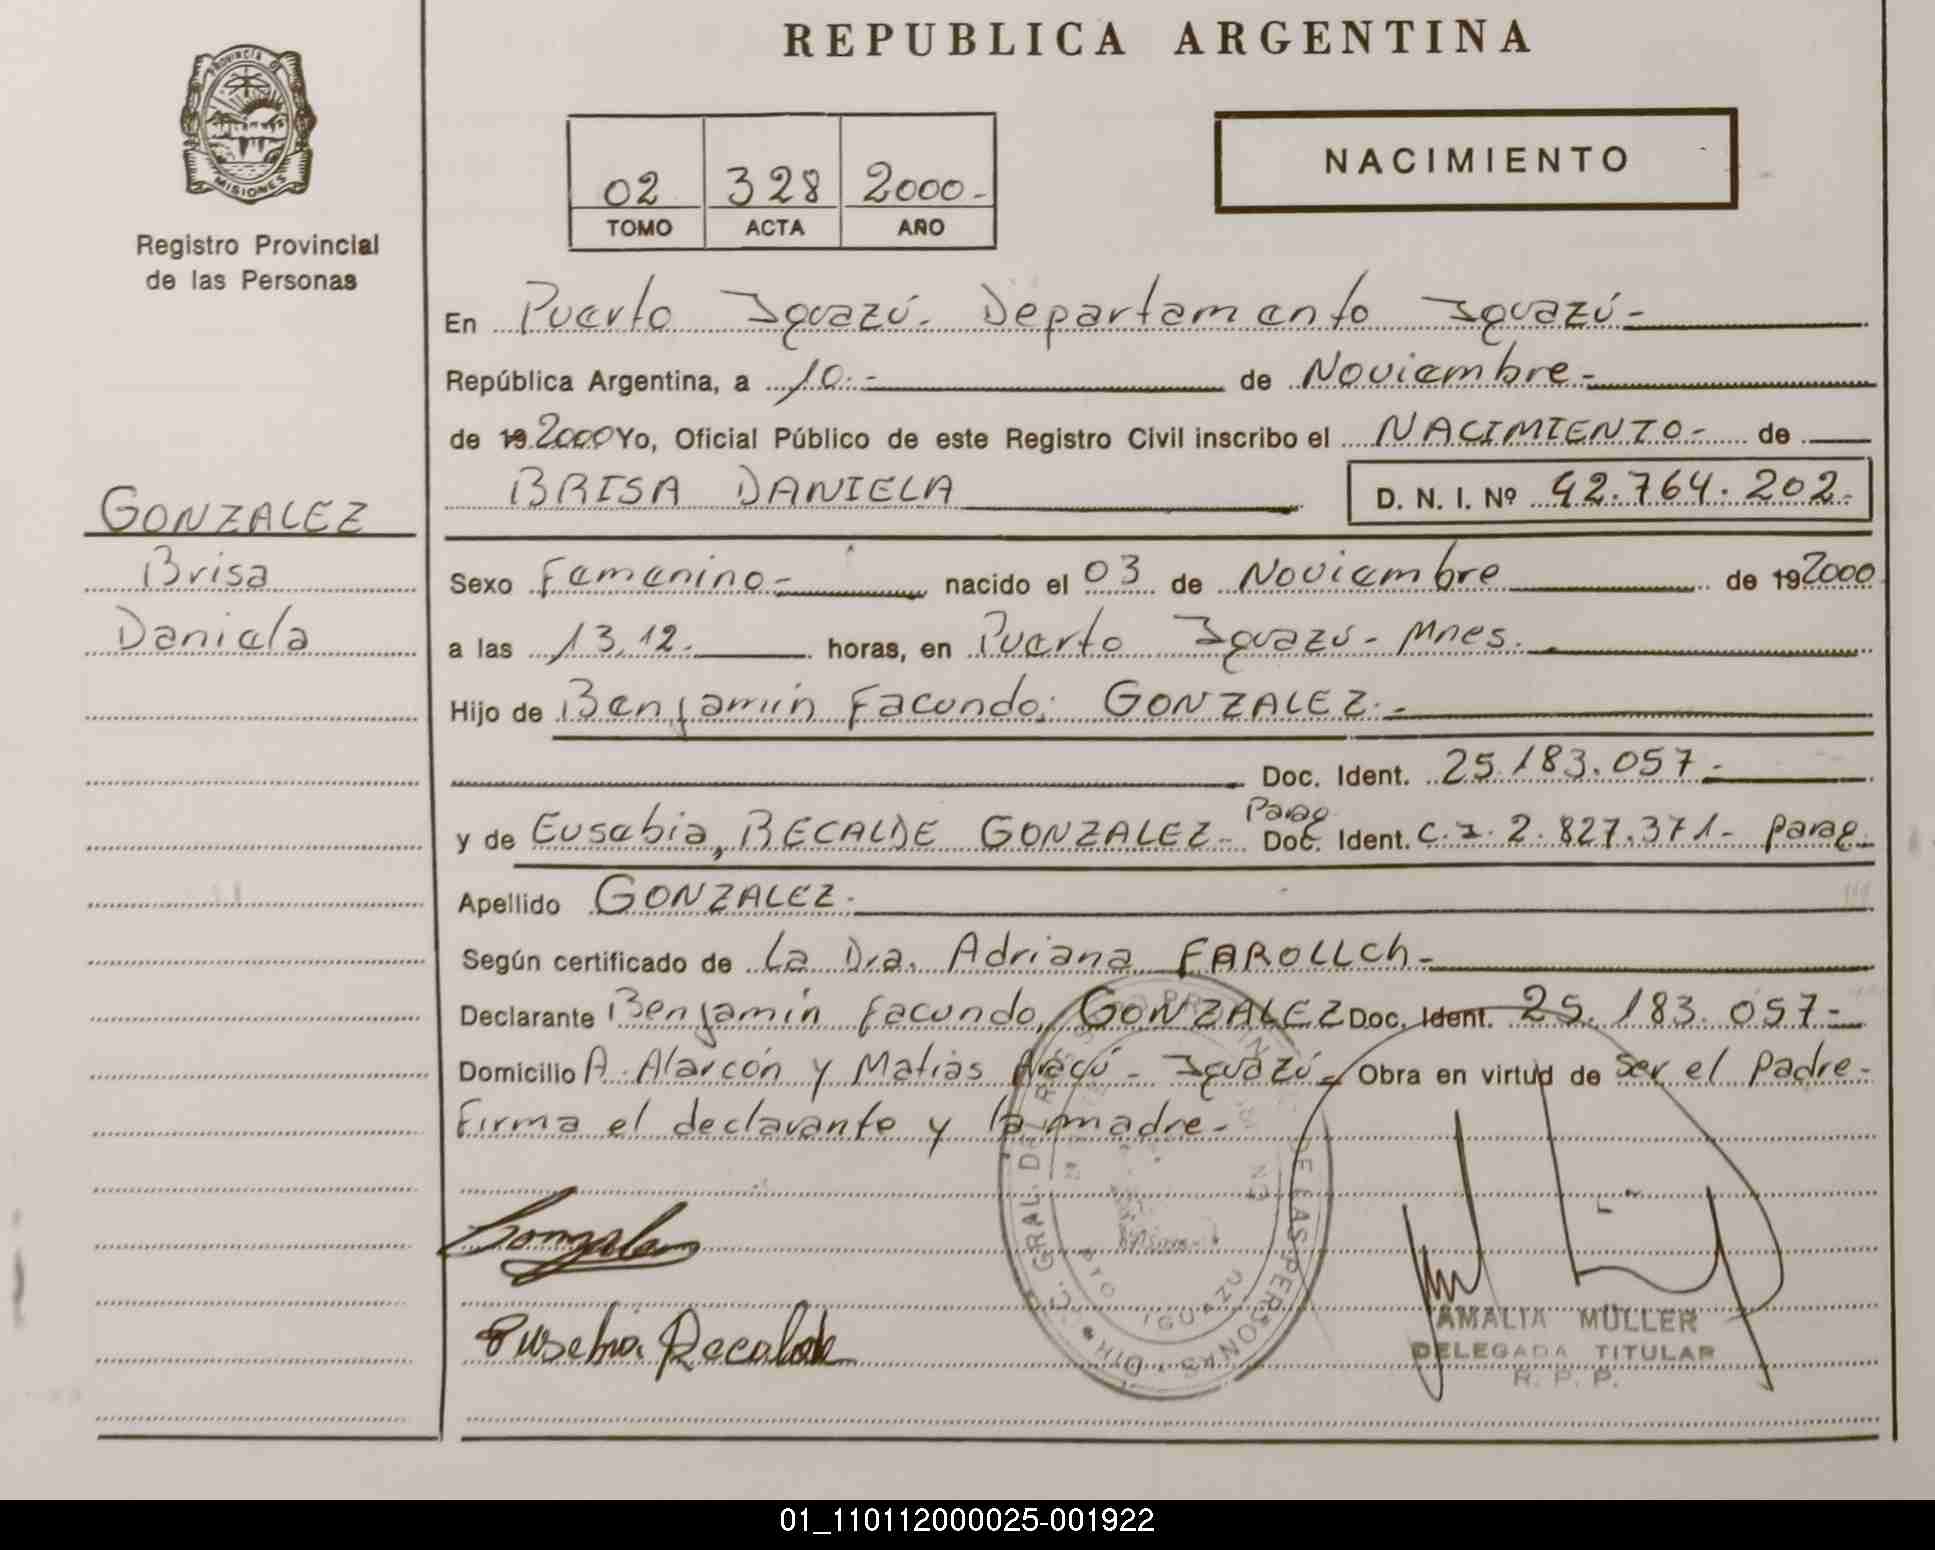 REPUBLICA ARGENTINA
PROVINCIA DE
MISIONES
Registro Provincial
de las Personas
02 328 2000-
TOMO ACTA AÑO
NACIMIENTO
En Puerto Iguazú- Departamento Iguazú-
República Argentina, a 10.- de Noviembre-
de 19 2000 Yo, Oficial Público de este Registro Civil inscribo el NACIMIENTO- de
BRISA DANIELA D. N. I. Nº 42.764.202-
GONZALEZ
Brisa
Daniela
Sexo Femenino- nacido el 03 de Noviembre de 19 2000
a las 13,12- horas, en Puerto Iguazú- Mnes.
Hijo de Benjamín Facundo; GONZALEZ.-
Doc. Ident. 25.183.057-
y de Eusebia, RECALDE GONZALEZ- Parag Doc. Ident. C.I. 2.827.371- Parag-
Apellido GONZALEZ-
Según certificado de La Dra. Adriana FAROLLCh-
Declarante Benjamín Facundo, GONZALEZ Doc. Ident. 25.183.057-
Domicilio A. Alarcón y Matias - Iguazú- Obra en virtud de ser el Padre-
Firma el declarante y la madre-
Gonzalez
Eusebia Recalde
DIR. GRAL. DEL REGISTRO PROVINCIAL DE LAS PERSONAS
PTO IGUAZU
AMALIA MÜLLER
DELEGADA TITULAR
R. P. P.
01_110112000025-001922